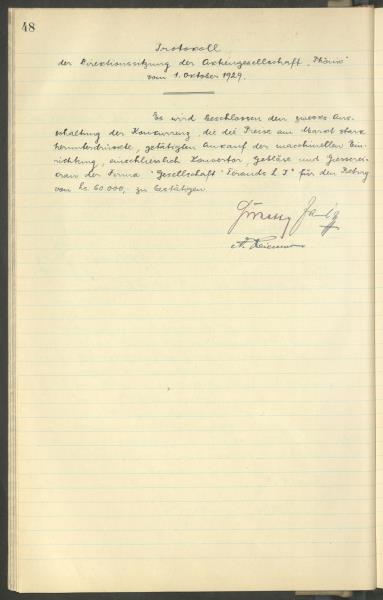 48
Protokoll
der Direktionssitzung der Aktiengesellschaft "Phönix"
vom 1. Oktober 1929.
Es wird beschlossen den zwecks Aus-
schaltung der Konkurrenz, die die Preise am Markt stark
herunterdrückte, getätigten Ankauf der maschinellen Ein-
richtung, einschliesslich Konvertor, Gebläse und Giesserei-
kran der Firma "Gesellschaft
für den Betrag
von Ls. 60.000,- zu bestätigen.